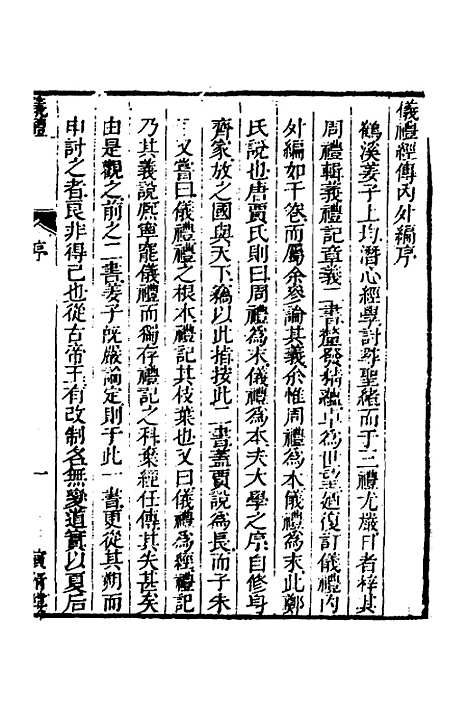 儀禮經傳內外編序
鶴溪姜子上均潛心經學討尋聖緒而于三禮尤嚴日者梓其
周禮輯義禮記章義二書釐發精蘊卓為世望廼復訂儀禮內
外編如干卷而屬余參論其義余惟周禮為本儀禮為末此鄭
氏說也唐賈氏則曰周禮為末儀禮為本夫大學之序自修身
齊家放之國與天下竊以此揣按此二書蓋賈說為長而子朱
子又嘗曰儀禮禮之根本禮記其枝葉也又曰儀禮為經禮記
乃其義說熙寧罷儀禮而獨存禮記之科棄經任傳其失甚矣
由是觀之前之二書姜子旣嚴論定則于此一書更從其朔而
申討之者良非得已也從古帝王有改制名無變道實以夏后
儀禮
序
一